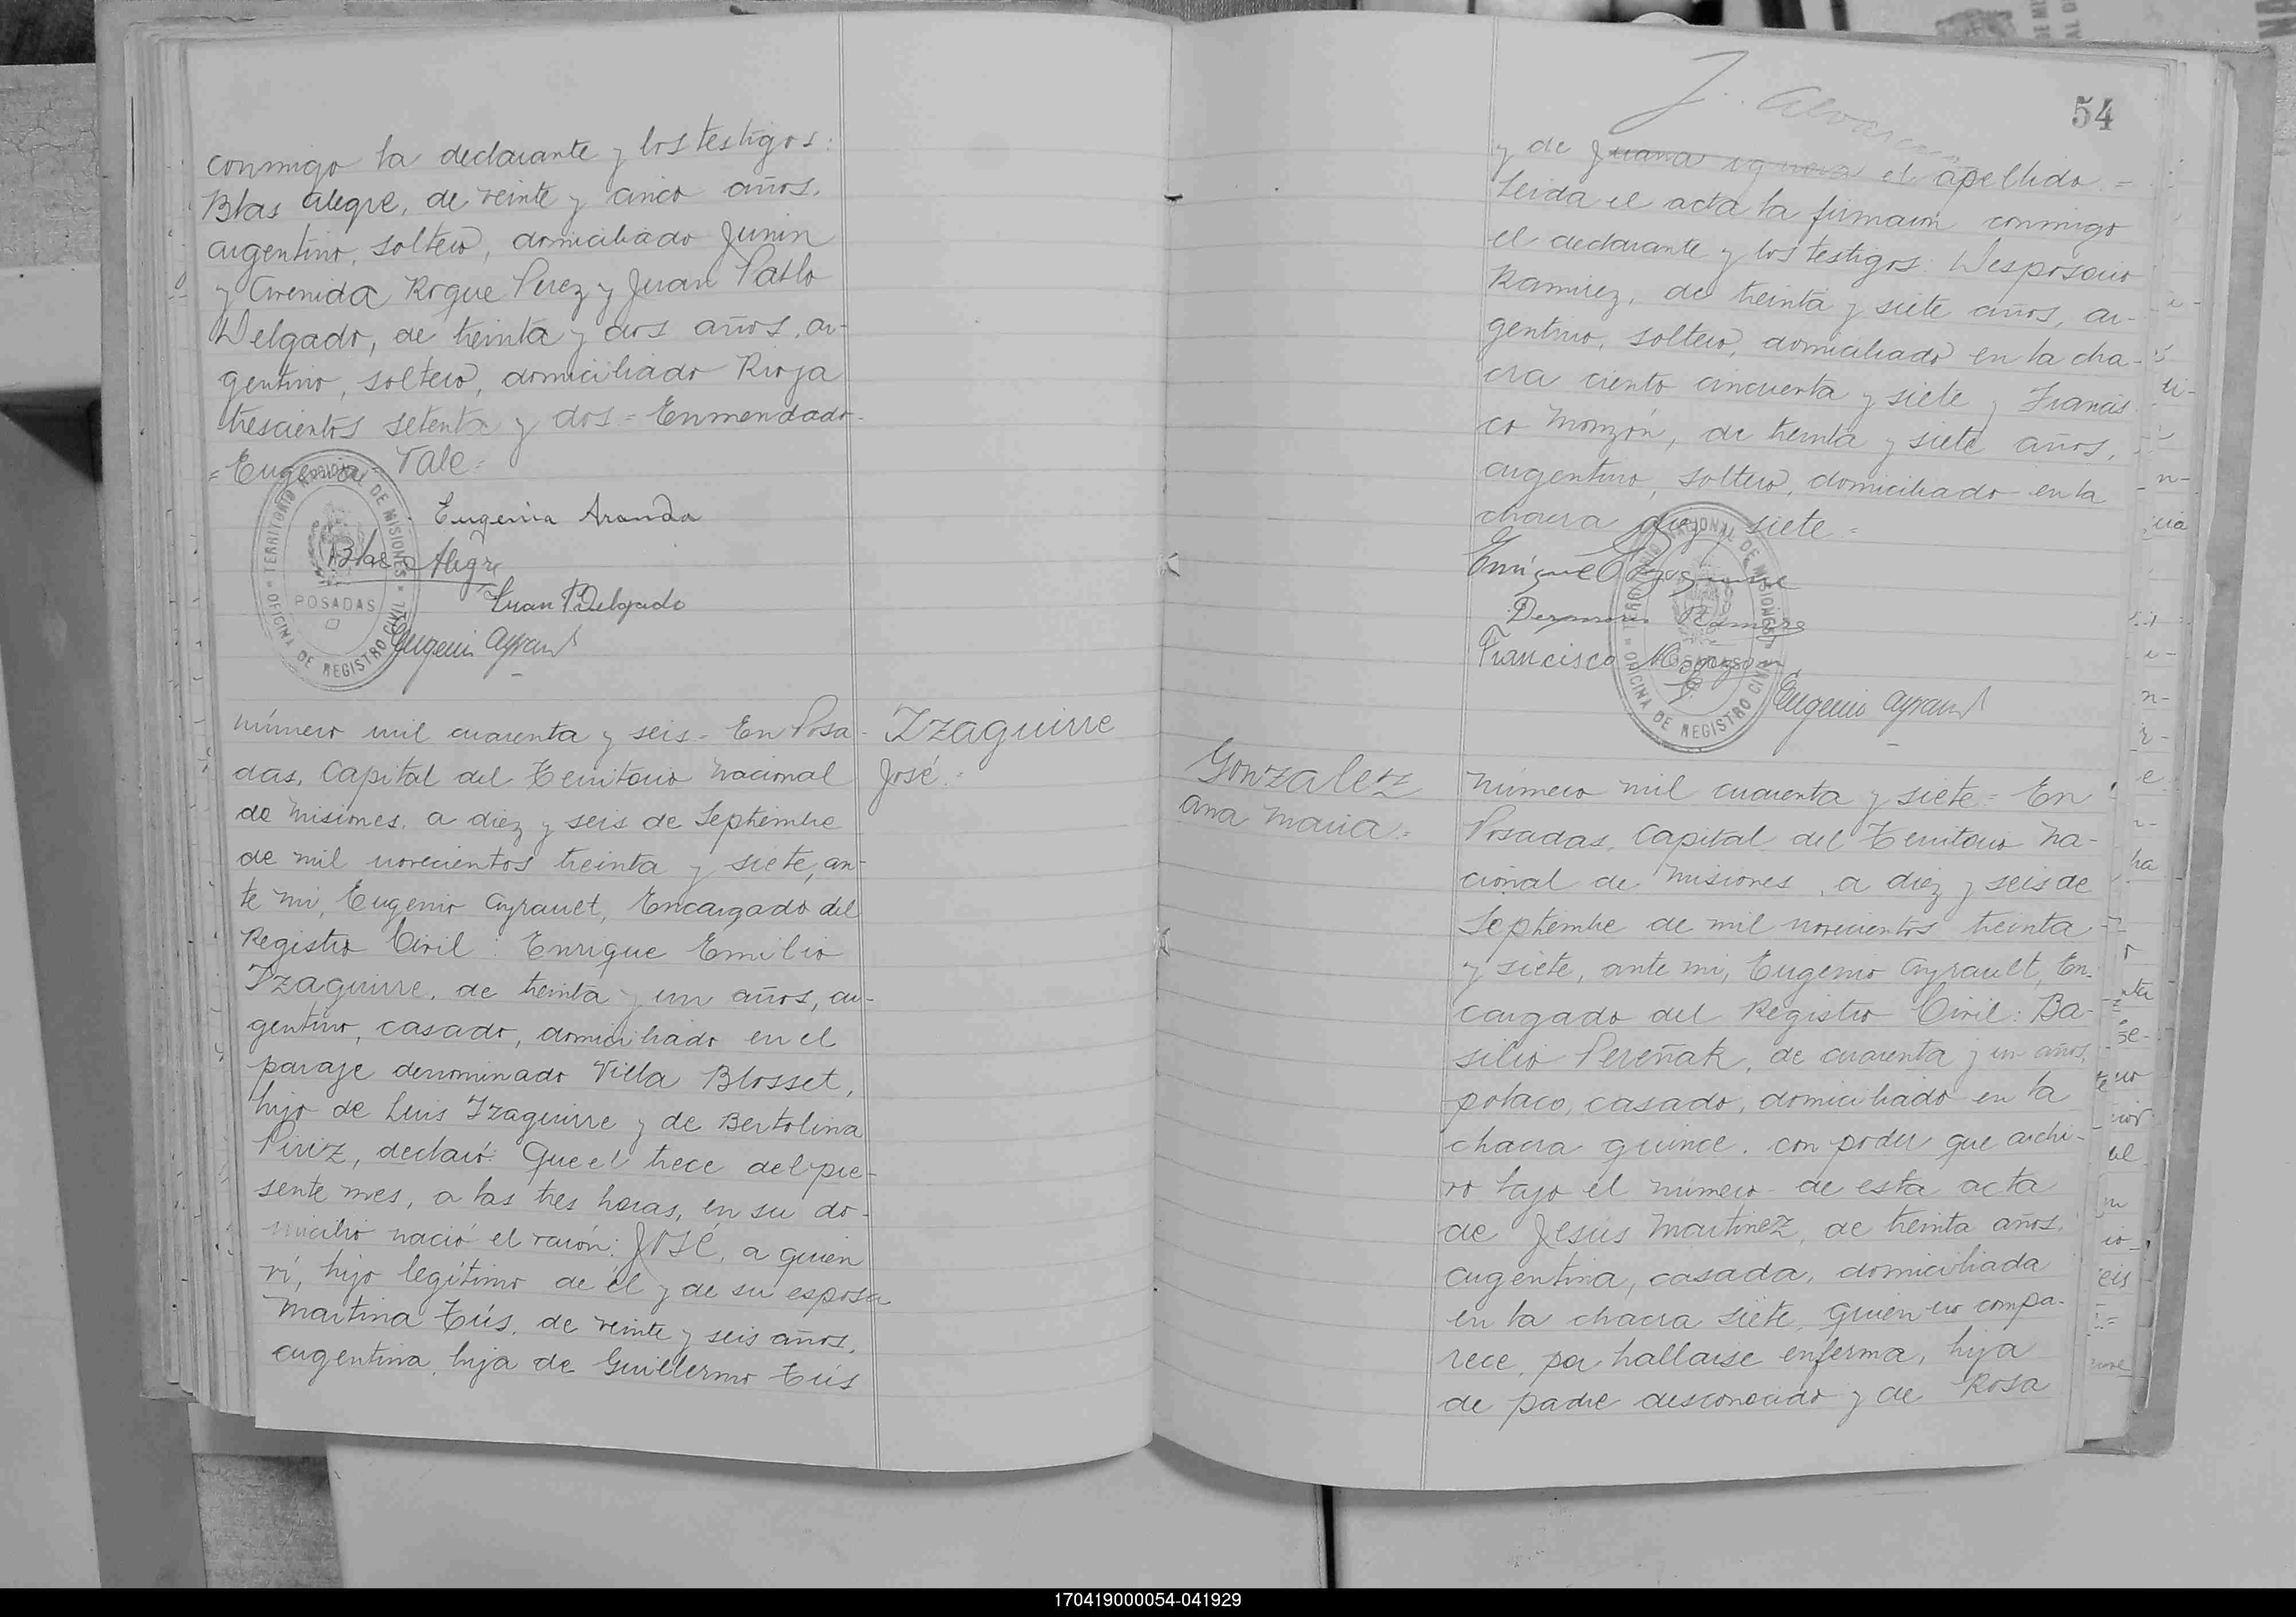 conmigo la declarante y los testigos:
Blas Alegre, de veinte y cinco años,
argentino, soltero, domiciliado Junin
y Avenida Roque Perez y Juan Pablo
Delgado, de treinta y dos años, ar-
gentino, soltero, domiciliado Rioja
trescientos setenta y dos = Enmendado
= Eugenia = Vale =
Eugenia Aranda
Blas Alegre
Juan P. Delgado
Eugenio Ayrault
TERRITORIO NACIONAL DE MISIONES
POSADAS
OFICINA DE REGISTRO CIVIL
Izaguirre
José =
número mil cuarenta y seis = En Posa-
das, Capital del Territorio Nacional
de Misiones, a diez y seis de Septiembre
de mil novecientos treinta y siete, an-
te mi, Eugenio Ayrault, Encargado del
Registro Civil: Enrique Emilio
Izaguirre, de treinta y un años, ar-
gentino, casado, domiciliado en el
paraje denominado Villa Blosset,
hijo de Luis Izaguirre y de Bertolina
Piriz, declaró: Que el trece del pre-
sente mes, a las tres horas, en su do-
micilio nació el varón: JOSÉ, a quien
ví, hijo legítimo de él y de su esposa
Martina Eús, de veinte y seis años,
argentina, hija de Guillermo Eús
J. Alvarez
54
y de Juana ignora el apellido =
Leida el acta la firmaron conmigo
el declarante y los testigos: Desposorio
Ramirez, de treinta y siete años, ar-
gentino, soltero, domiciliado en la cha-
cra ciento cincuenta y siete y Francis
co Monzón, de treinta y siete años,
argentino, soltero, domiciliado en la
chacra diez y siete =
Enrique Izaguirre
Ramirez
Francisco Monzon
Eugenio Ayrault
TERRITORIO NACIONAL DE MISIONES
POSADAS
OFICINA DE REGISTRO CIVIL
Gonzalez
Ana Maria =
Número mil cuarenta y siete = En
Posadas, Capital del Territorio Na-
cional de Misiones, a diez y seis de
Septiembre de mil novecientos treinta
y siete, ante mi, Eugenio Ayrault, En-
cargado del Registro Civil: Ba-
silio Pereñak, de cuarenta y un años,
polaco, casado, domiciliado en la
chacra quince, con poder que archi-
vo bajo el número de esta acta
de Jesús Martinez, de treinta años,
argentina, casada, domiciliada
en la chacra siete, quien no compa-
rece por hallarse enferma, hija
de padre desconocido y de Rosa
170419000054-041929